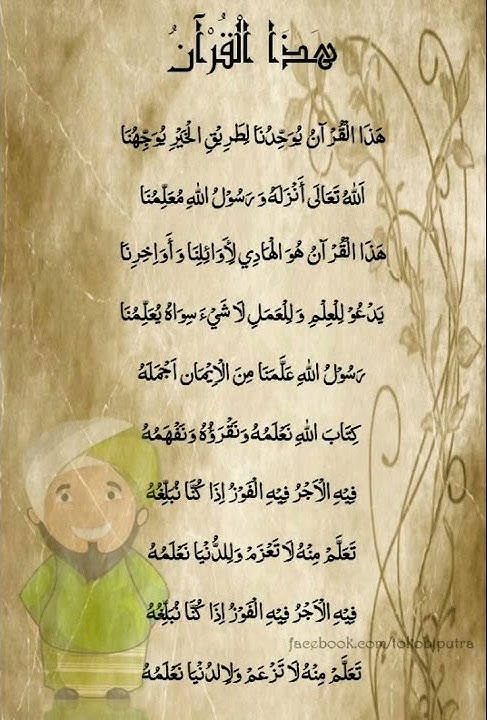 هَذَا الْقُرْآنُ
هَذَا الْقُرْآنُ يُوَحِّدُنَا لِطَرِيْقِ الْخَيْرِ يُوَجِّهُنَا
اَللهُ تَعَالَى أَنْزَلَهُ وَ رَسُوْلُ اللهِ مُعَلِّمُنَا
هَذَا الْقُرْآنُ هُوَ الْهَادِي لِأَوَائِلِنَا وَ أَوَاخِرِنَا
يَدْعُوْ لِلْعِلْمِ وَ لِلْعَمَلِ لَا شَيْءَ سِوَاهُ يُعَلِّمُنَا
رَسُوْلُ اللهِ عَلَّمَنَا مِنَ الْإِيْمَانِ اَجْمَلَهُ
كِتَابَ اللهِ نَعْلَمُهُ وَنَقْرَؤُهُ وَنَفْهَمُهُ
فِيْهِ الْاَجْرُ فِيْهِ الْفَوْزُ اِذَا كُنَّا نُبَلِّغُهُ
تَعَلَّمْ مِنْهُ لَا تَعْزَمْ وَلِلدُّنْيَا نَعْلَمُهُ
فِيْهِ الْاَجْرُ فِيْهِ الْفَوْزُ اِذَا كُنَّا نُبَلِّغُهُ
facebook.com/tokobiputra
تَعَلَّمْ مِنْهُ لَا تَزْعَمْ وَلِلدُنْيَا نَعْلَمُهُ